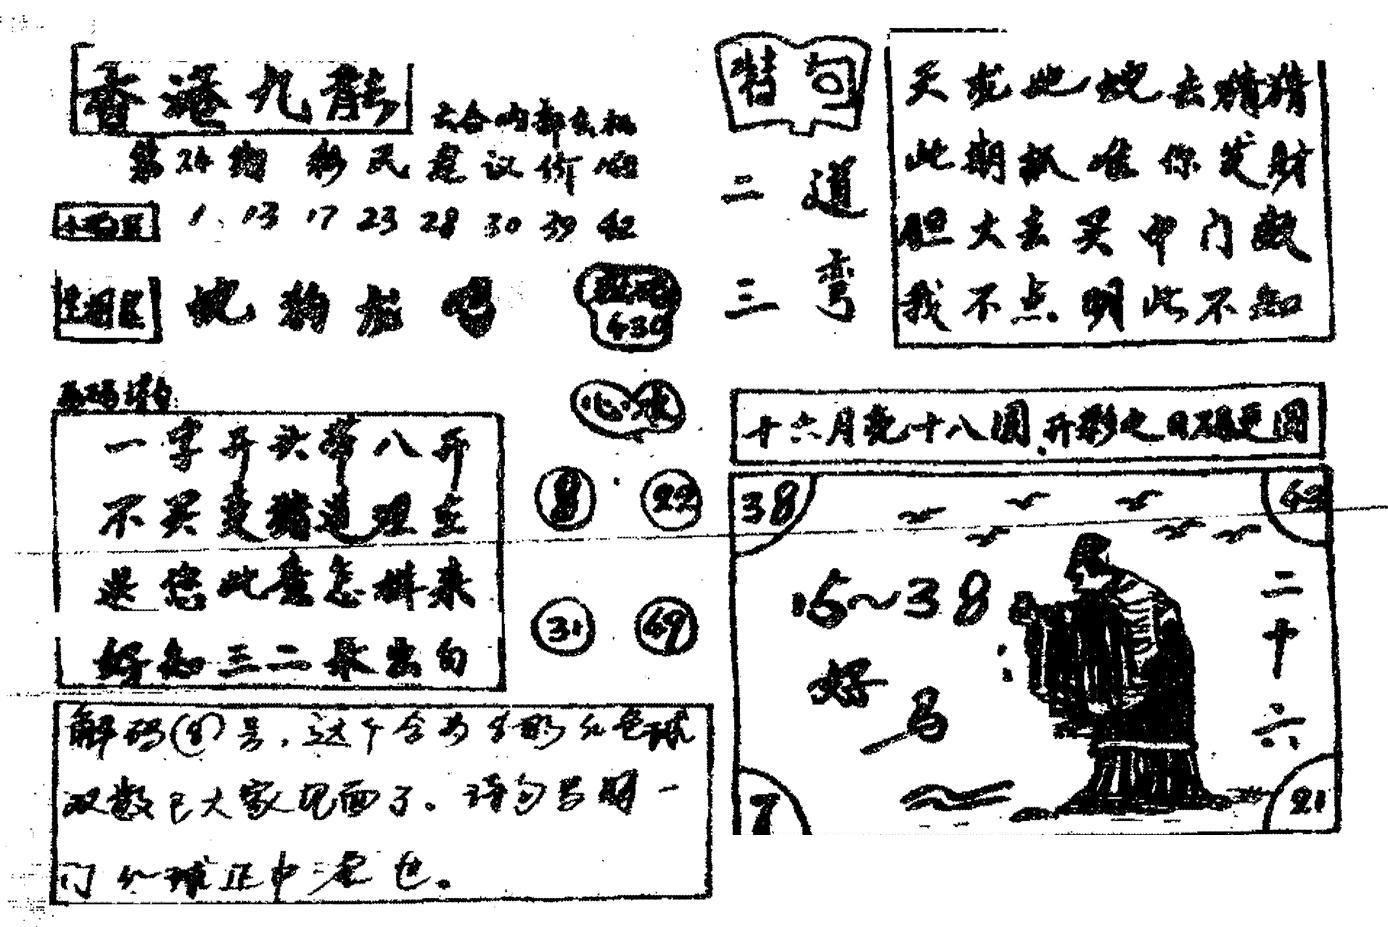 香港九龍
六合内部玄机
第24期 彩民意议价
1. 13 17 23 28 30 39 42
蛇狗龙鸡
430
一字开头带八开
不买变猪道理在
是您此意怎样来
好知三二暴出句
心水
8 22
31 69
解码(8)号,这个合为 红色球
双数已大家见面了。诗句若明一
门红球正中 色。
特句
二道
三弯
天龙地蛇去猜猜
此期抓准你发财
胆大去买中门数
我不点明此不知
十六月亮十八圆.开彩之日碌更圆
38 43
15~38
好马
二十六
7 21